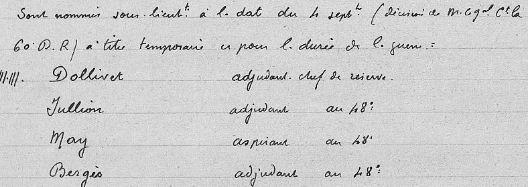 Sont nommés sous-lieutt à la dat du 4 septbre (décision de M. le gal Ct la
60e D.R) à titre temporaire et pour la durée de la guerre :
Dollivet adjudant-chef de réserve.
Jullion adjudant au 48e
May aspirant au 48e
Bergès adjudant au 48e